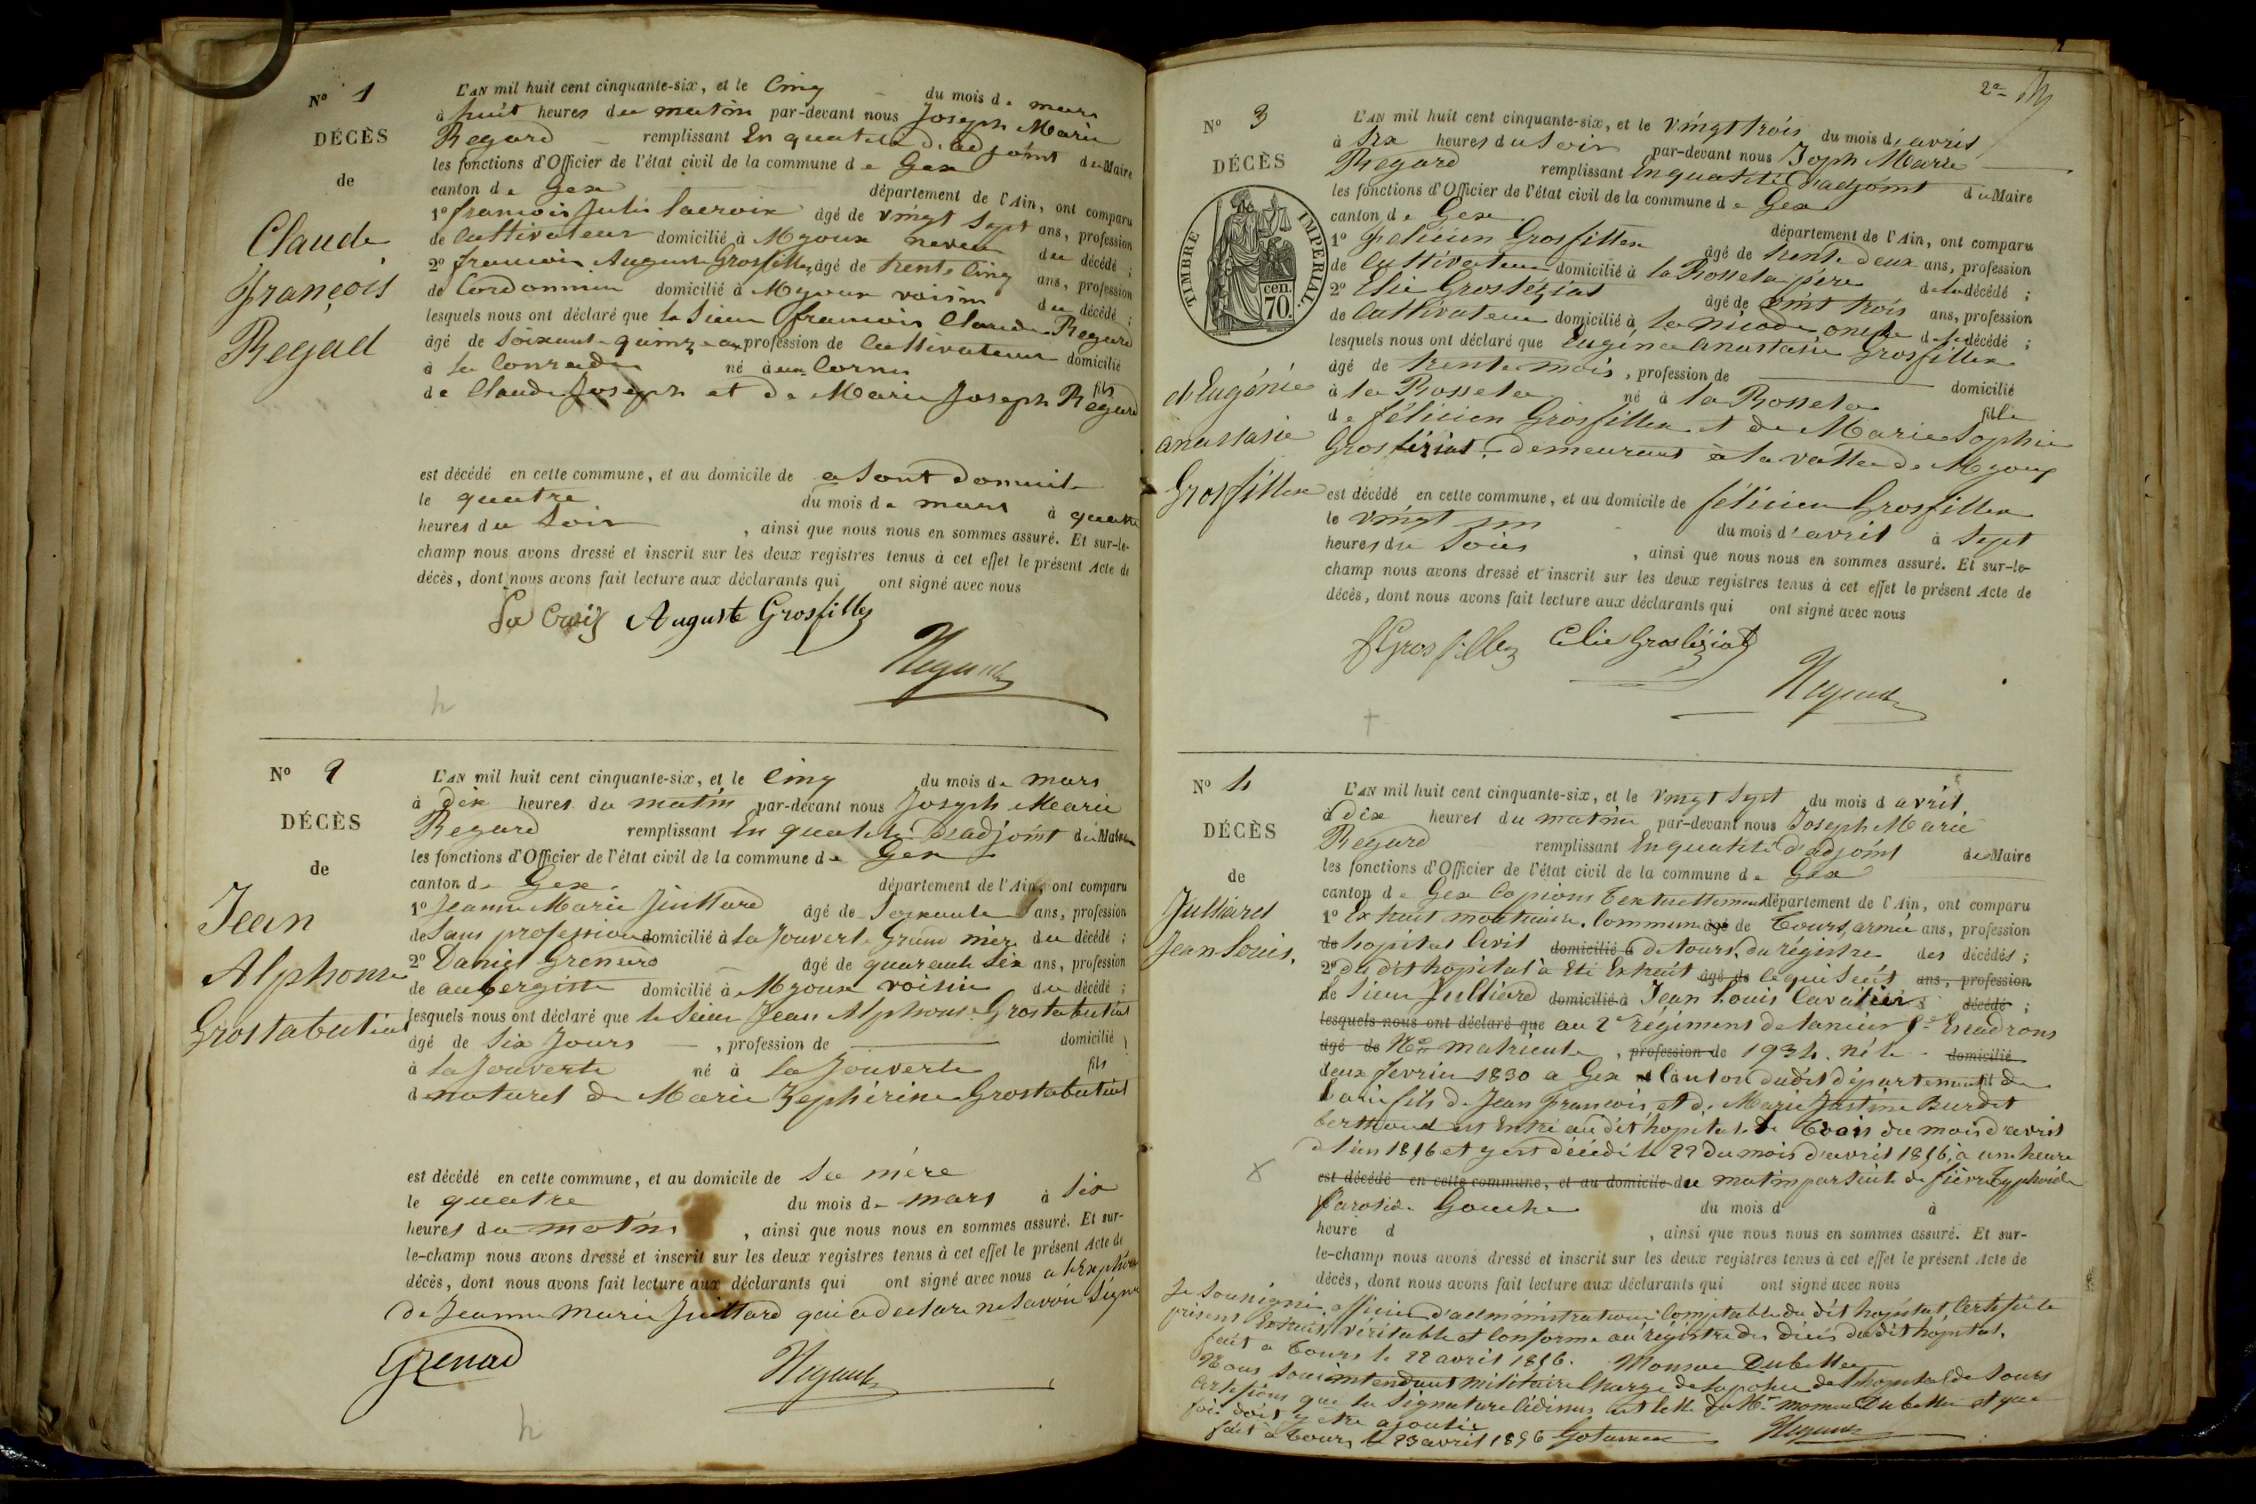 Nº 1
DÉCÈS
de
Claude
François
Regad
L'AN mil huit cent cinquante-six, et le Cinq du mois de mars
à huit heures du matin par-devant nous Joseph Marie
Regard remplissant En qualité d'adjoint du Maire
les fonctions d'Officier de l'état civil de la commune de Gex
canton de Gex département de l'Ain, ont comparu
1º françois Julis Lacroix âgé de vingt sept ans, profession
de Cultivateur domicilié à Myoux neveu du décédé ;
2º françois Auguste Grosfillez âgé de trente Cinq ans, profession
de Cordonnier domicilié à Myoux voisin du décédé ;
lesquels nous ont déclaré que le Sieur françois Claude Regard
âgé de Soixante-quinze ans profession de Cultivateur domicilié
à la né aux Cornes fils
de Claude Joseph et de Marie Joseph Regard
est décédé en cette commune, et au domicile de a Sont Domicile
le quatre du mois de mars à quatre
heures du Soir , ainsi que nous nous en sommes assuré. Et sur-le-
champ nous avons dressé et inscrit sur les deux registres tenus à cet effet le présent Acte de
décès, dont nous avons fait lecture aux déclarants qui ont signé avec nous
La Croix Auguste Grosfillez
Regard
Nº 2
DÉCÈS
de
Jean
Alphonse
Grostabutiat
L'AN mil huit cent cinquante-six, et le Cinq du mois de mars
à dix heures du matin par-devant nous Joseph Marie
Regard remplissant En qualité d'adjoint du Maire
les fonctions d'Officier de l'état civil de la commune de Gex
canton de Gex. département de l'Ain, ont comparu
1º Jeanne Marie Juillard âgé de Soixante ans, profession
de Sans profession domicilié à La Jouverte Grand mère du décédé ;
2º Daniel Grenard âgé de quarante Six ans, profession
de aubergiste domicilié à Myoux voisin du décédé ;
lesquels nous ont déclaré que le Sieur Jean Alphonse Grostabutiat
âgé de Six Jours , profession de domicilié
à la Jouverte né à la Jouverte fils
de naturel de Marie Zephirine Grostabutiat
est décédé en cette commune, et au domicile de Sa mère
le quatre du mois de mars à Six
heures du matin , ainsi que nous nous en sommes assuré. Et sur-
le-champ nous avons dressé et inscrit sur les deux registres tenus à cet effet le présent Acte de
décès, dont nous avons fait lecture aux déclarants qui ont signé avec nous
de Jeanne Marie Juillard qui a declare ne Savoir Signer
Grenard
Regard
2e
Nº 3
DÉCÈS
TIMBRE IMPERIAL.
70 cen.
d'Eugénie
anastasie
Grosfillex
L'AN mil huit cent cinquante-six, et le vingt trois du mois d'avril
à Six heures du Soir par-devant nous Joseph Marie
Regard remplissant En qualité d'adjoint du Maire
les fonctions d'Officier de l'état civil de la commune de Gex
canton de Gex département de l'Ain, ont comparu
1º félicien Grosfillex âgé de trente deux ans, profession
de Cultivateur domicilié à la Rosseta père de la décédé ;
2º Elie Grosléziat âgé de vint trois ans, profession
de Cultivateur domicilié à oncle de la décédé ;
lesquels nous ont déclaré que Eugénie anastasie Grosfillex
âgé de trente mois , profession de domicilié
à la Rosseta né à la Rosseta fille
de félicien Grosfillex et de Marie Sophie
Groslésiat demeurant à la vallée de Myoux
est décédé en cette commune, et au domicile de félicien Grosfillex
le vingt un du mois d'avril à Sept
heures du Soir , ainsi que nous nous en sommes assuré. Et sur-le-
champ nous avons dressé et inscrit sur les deux registres tenus à cet effet le présent Acte de
décès, dont nous avons fait lecture aux déclarants qui ont signé avec nous
fGrosfillez Elie Grosléziat
Regard
Nº 4
DÉCÈS
de
Julliard
Jean Louis.
L'AN mil huit cent cinquante-six, et le vingt Sept du mois d avril
à dix heures du matin par-devant nous Joseph Marie
Regard remplissant En qualité d'adjoint du Maire
les fonctions d'Officier de l'état civil de la commune de Gex
canton de Gex Copions Textuellement département de l'Ain, ont comparu
1º Extrait mortuaire. Commune âgé de Tours, armée ans, profession
de hopital Civil domicilié à de tours, du régistre des décédés ;
2º du dit hopital à Eté Extrait âgé de ce qui Suit ans, profession
le Sieur Julliard domicilié à Jean Louis Cavalier décédé ;
lesquels nous ont déclaré que au 2e régiment de lancier Escadrons
âgé de No matricule , profession de 1934. né le domicilié
deux fevrier 1830 a Gex Canton dudit département fil de
l'ain fils de Jean françois et de Marie Justine Burdet
est Entré au dit hopital le du mois d'avril
d l'an 1856 et y est décédé le 22 du mois d'avril 1856, à une heure
est décédé en cette commune, et au domicile du matin par Suite de fièvre Typhoïde
Parotide Gauche du mois d à
heure d , ainsi que nous nous en sommes assuré. Et sur-
le-champ nous avons dressé et inscrit sur les deux registres tenus à cet effet le présent Acte de
décès, dont nous avons fait lecture aux déclarants qui ont signé avec nous
Je Soussigné, officier d'administration Comptable du dit hopital, Certifie le
présent Extrait véritable et Conforme au régistre des décès du dit hôpital.
fait a Tours le 22 avril 1856.
Nous Sous intendant militaire Chargé de la police de l'hopital de Tours
Certifions que la Signature Cidessus est celle de Mr et que
foi doit y être ajoutée
fait à Tours le 23 avril 1856
Regard